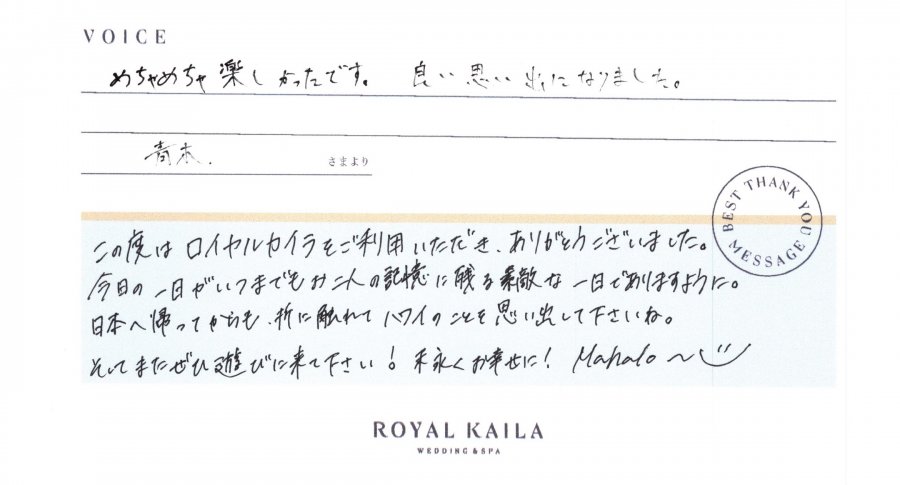 VOICE
めちゃめちゃ楽しかったです。 良い思い出になりました。
青木. さまより
BEST THANK YOU MESSAGE
この度は ロイヤルカイラをご利用いただき、ありがとうございました。
今日の一日がいつまでもお二人の記憶に残る素敵な一日でありますように。
日本へ帰ってからも、折に触れて ハワイのことを思い出して下さいね。
そしてまたぜひ遊びに来て下さい! 末永くお幸せに! Mahalo~
ROYAL KAILA
WEDDING & SPA